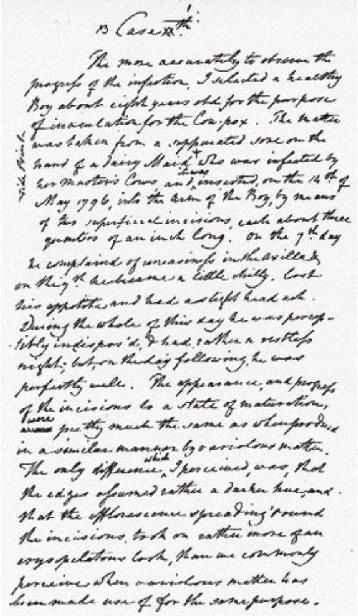 13 Case th
The more accurately to observe the
progress of the infection, I selected a healthy
Boy about eight years old for the purpose
of inoculation for the Cow-pox. The matter
was taken from a suppurated sore on the
hand of a dairy Maid, who was infected by
her Master's Cows, and it was inserted, on the 14th of
May 1796, into the arm of the Boy, by means
of two superficial incisions, each about three
quarters of an inch long. On the 7th day
he complained of uneasiness in the axilla &
on the 9th he became a little chilly. Lost
his appetite, and had a slight head ach.
During the whole of this day he was percep-
tibly indispos'd, & had rather a restless
night; but, on the day following, he was
perfectly well. The appearance, and progress
of the incisions to a state of maturation,
were pretty much the same as when produced
in a similar manner by variolous matter.
The only difference which I perceived, was, that
the edges assumed rather a darker hue, and
that the efflorescence spreading round
the incisions, took on rather more of an
erysipelatous look, than we commonly
perceive when variolous matter has
been made use of for the same purpose.